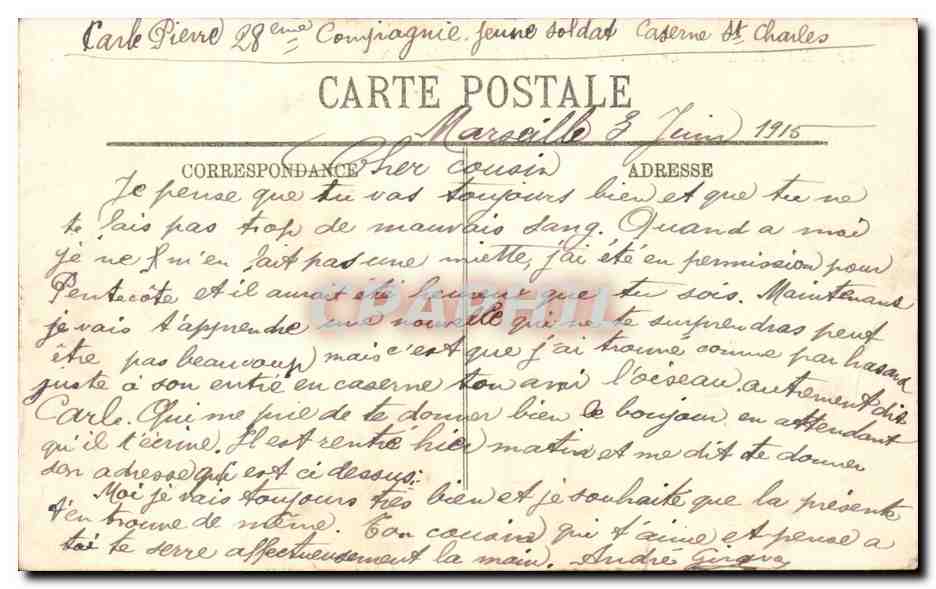 Carle Pierre 28eme Compagnie. jeune soldat Caserne St Charles
CARTE POSTALE
Marseille 3 Juin 1915
CORRESPONDANCE
ADRESSE
Cher Cousin
Je pense que tu vas toujours bien et que tu ne
te fais pas trop de mauvais sang. Quand a moi
je ne m'en fait pas une miette, j'ai été en permission pour
Pentecôte et il aurait été heureux que tu sois. Maintenant
je vais t'apprendre une nouvelle qui ne te surprendras peut
être pas beaucoup mais c'est que j'ai trouvé comme par hasard
juste à son entré en caserne ton ami l'oiseau autrement dit
Carle. Qui me prie de te donner bien le boujour en attendant
qu'il t'écrive. Il est rentré hier matin et me dit de te donner
son adresse qui est ci dessus:
Moi je vais toujours très bien et je souhaite que la présente
t'en trouve de même. Ton cousin qui t'aime et pense a
toi te serre affectueusement la main. André
CPAPHIL